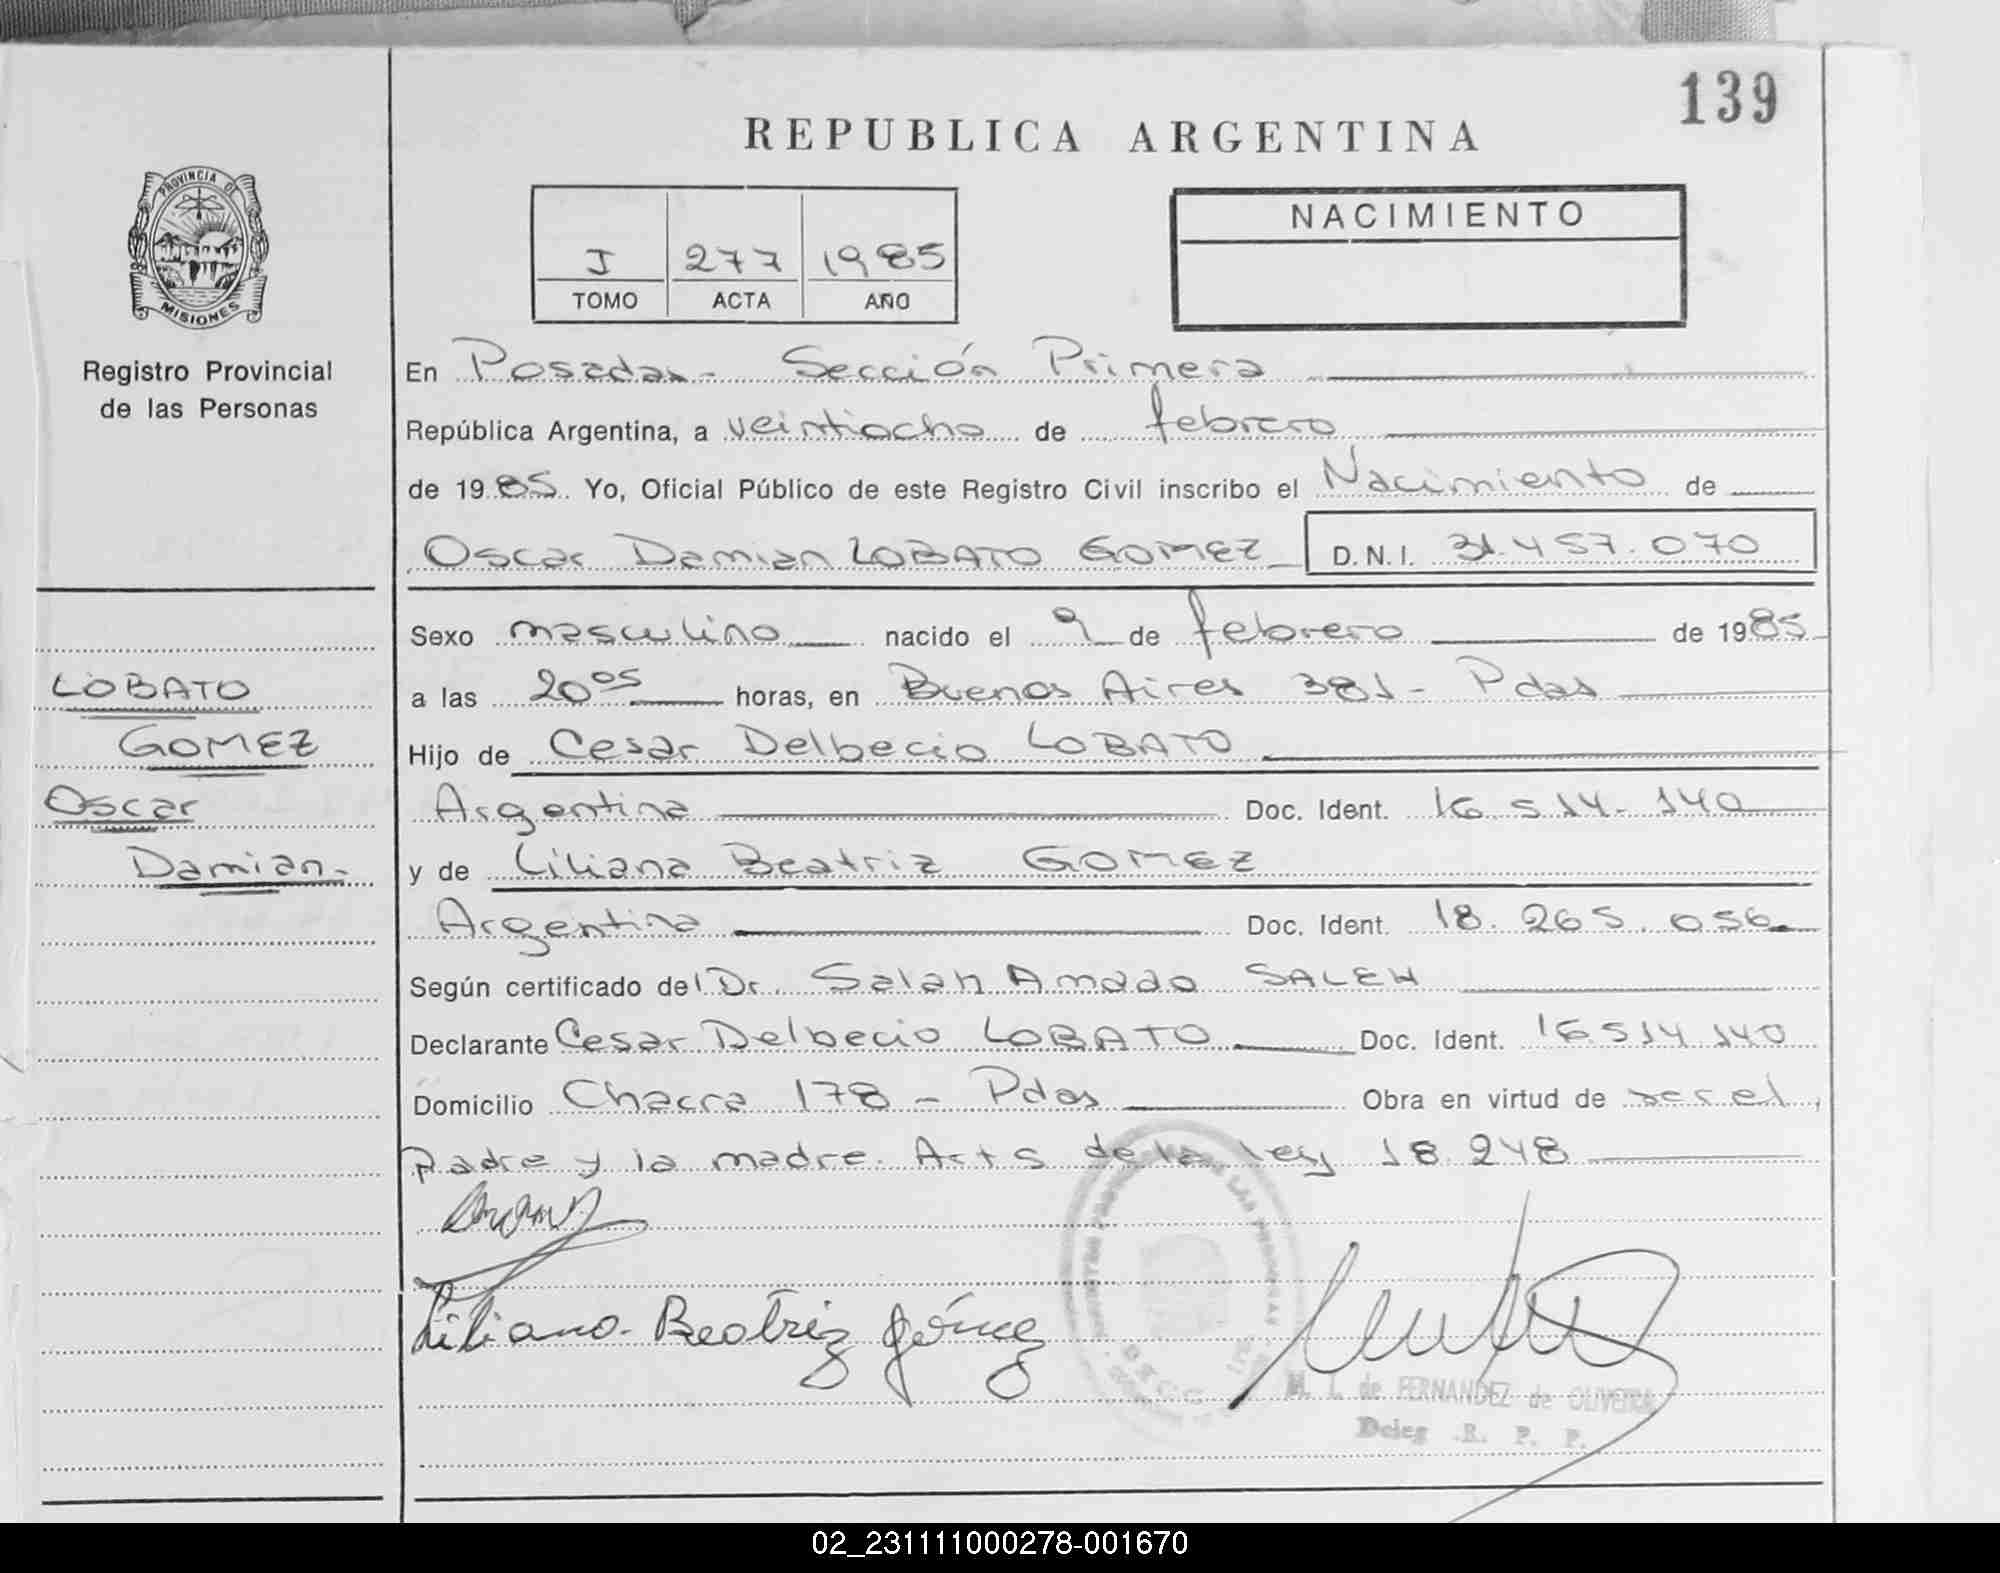 139
REPUBLICA ARGENTINA
PROVINCIA DE
MISIONES
Registro Provincial
de las Personas
I 277 1985
TOMO ACTA AÑO
NACIMIENTO
En Posadas - Sección Primera
República Argentina, a veintiocho de febrero
de 1985 Yo, Oficial Público de este Registro Civil inscribo el Nacimiento de
Oscar Damian LOBATO GOMEZ D.N.I. 31.457.070
Sexo masculino nacido el 9 de febrero de 1985
a las 20 05 horas, en Buenos Aires 381 - Pdas
Hijo de Cesar Delbecio LOBATO
Argentina Doc. Ident. 16.514.140
y de Liliana Beatriz GOMEZ
Argentina Doc. Ident. 18.265.056
Según certificado del Dr. Salah Amado SALEH
Declarante Cesar Delbecio LOBATO Doc. Ident. 16514140
Domicilio Chacra 178 - Pdas Obra en virtud de ser el
padre y la madre. Art 5 de la ley 18.248
LOBATO
GOMEZ
Oscar
Damian.
Liliana Beatriz Gómez
M. I. de FERNANDEZ de OLIVEIRA
Deleg. R. P. P.
02_231111000278-001670